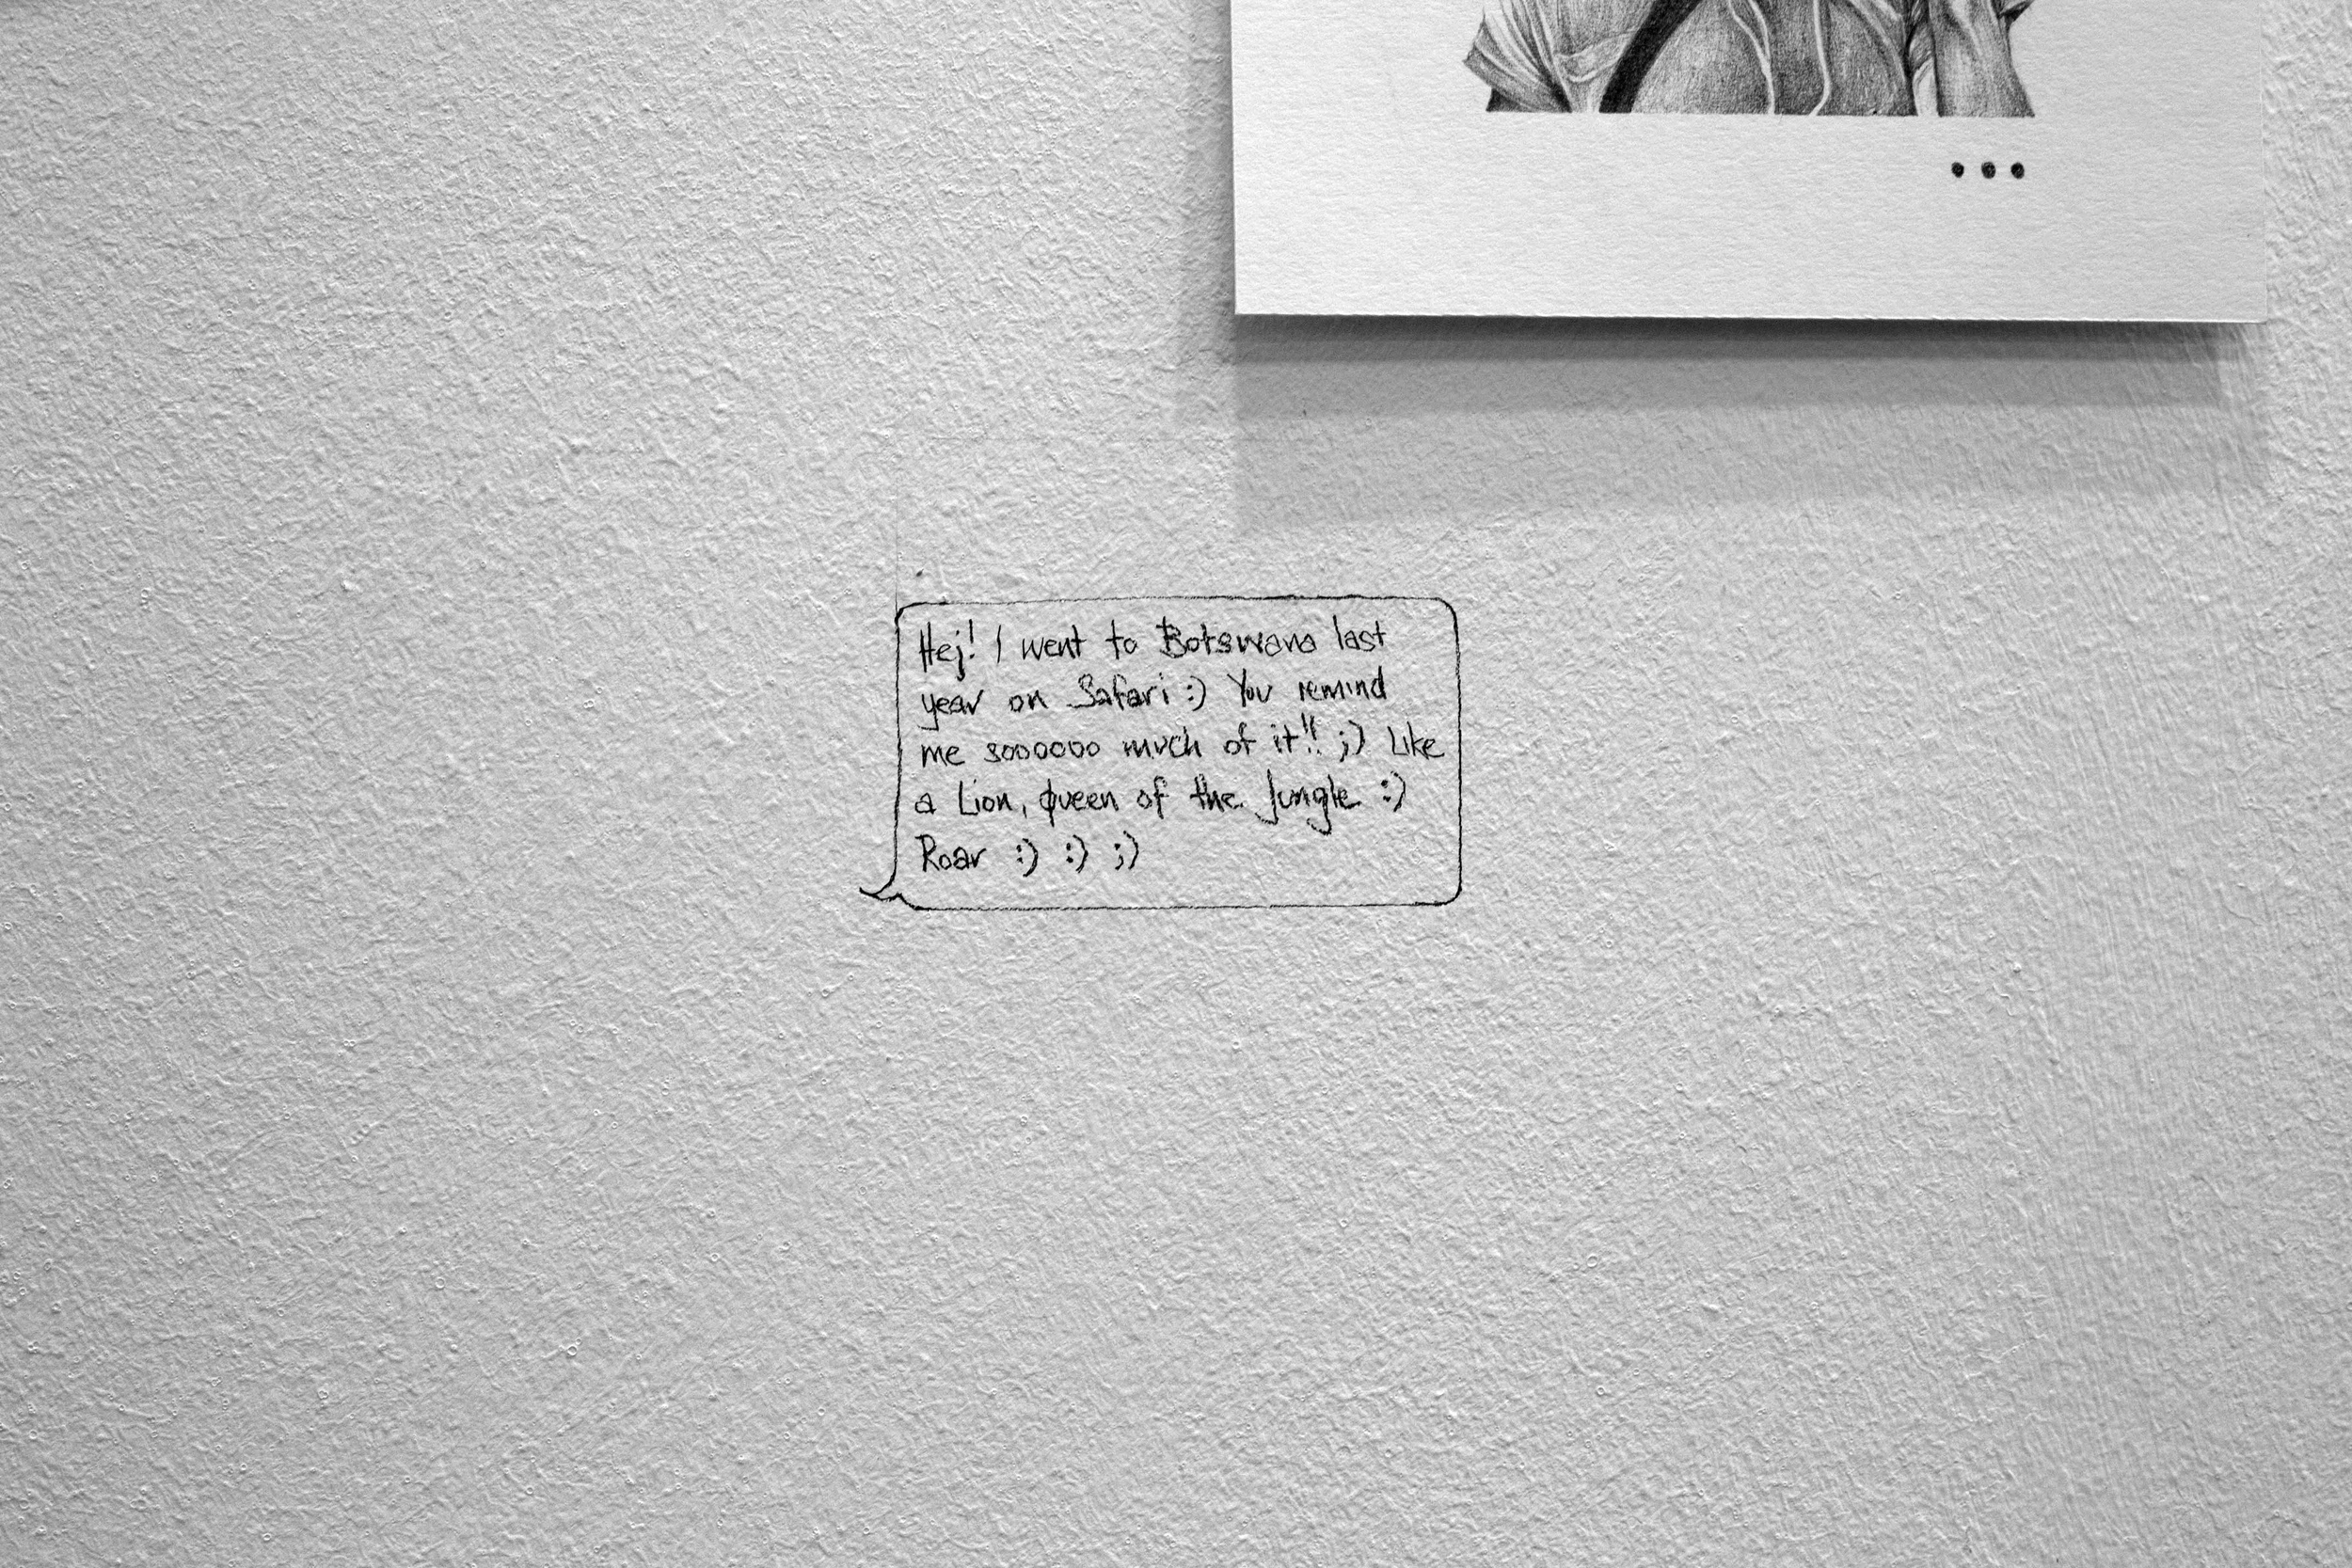 Hej! I went to Botswana last
year on Safari :) You remind
me sooooooo much of it!! ;) Like
a Lion, queen of the Jungle :)
Roar :) :) ;)